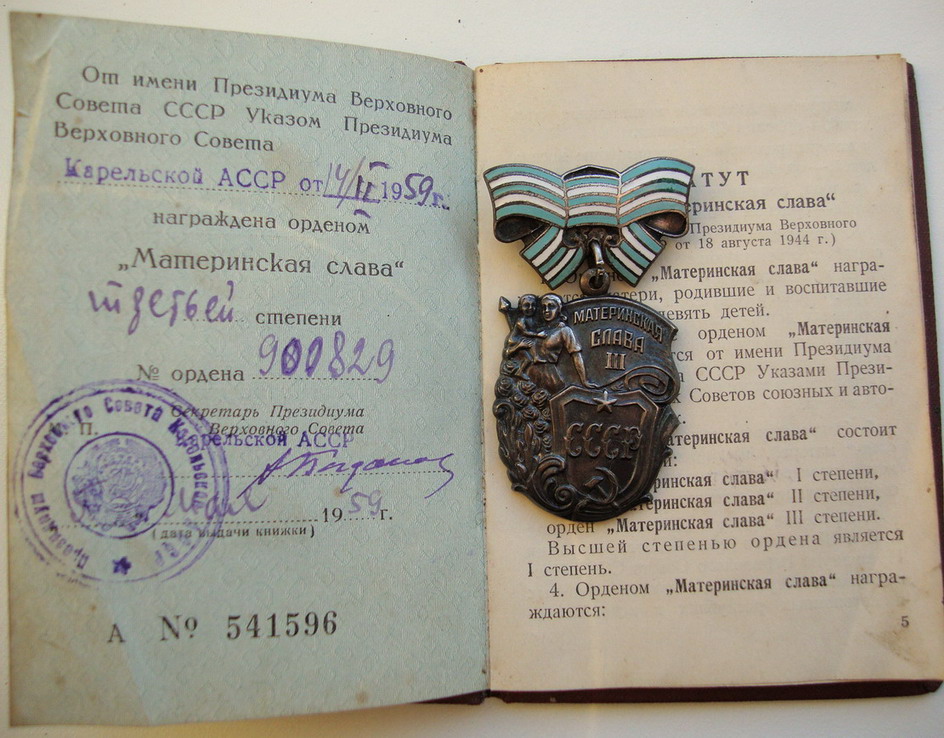 От имени Президиума Верховного
Совета СССР Указом Президиума
Верховного Совета
Карельской АССР от 14/II 1959г.
награждена орденом
„Материнская слава“
третьей степени
№ ордена 900829
Секретарь Президиума
П. Верховного Совета
Карельской АССР
1959 г.
(дата выдачи книжки)
Президиум Верховного Совета Карельской
А № 541596
МАТЕРИНСКАЯ
СЛАВА
III
СССР
АТУТ
теринская слава“
Президиума Верховного
от 18 августа 1944 г.)
„Материнская слава“ награ-
матери, родившие и воспитавшие
девять детей.
орденом „Материнская
от имени Президиума
СССР Указами Прези-
Советов союзных и авто-
атеринская слава“ состоит
нская слава“ I степени,
Материнская слава“ II степени,
орден „Материнская слава“ III степени.
Высшей степенью ордена является
I степень.
4. Орденом „Материнская слава“ награ-
ждаются:
5